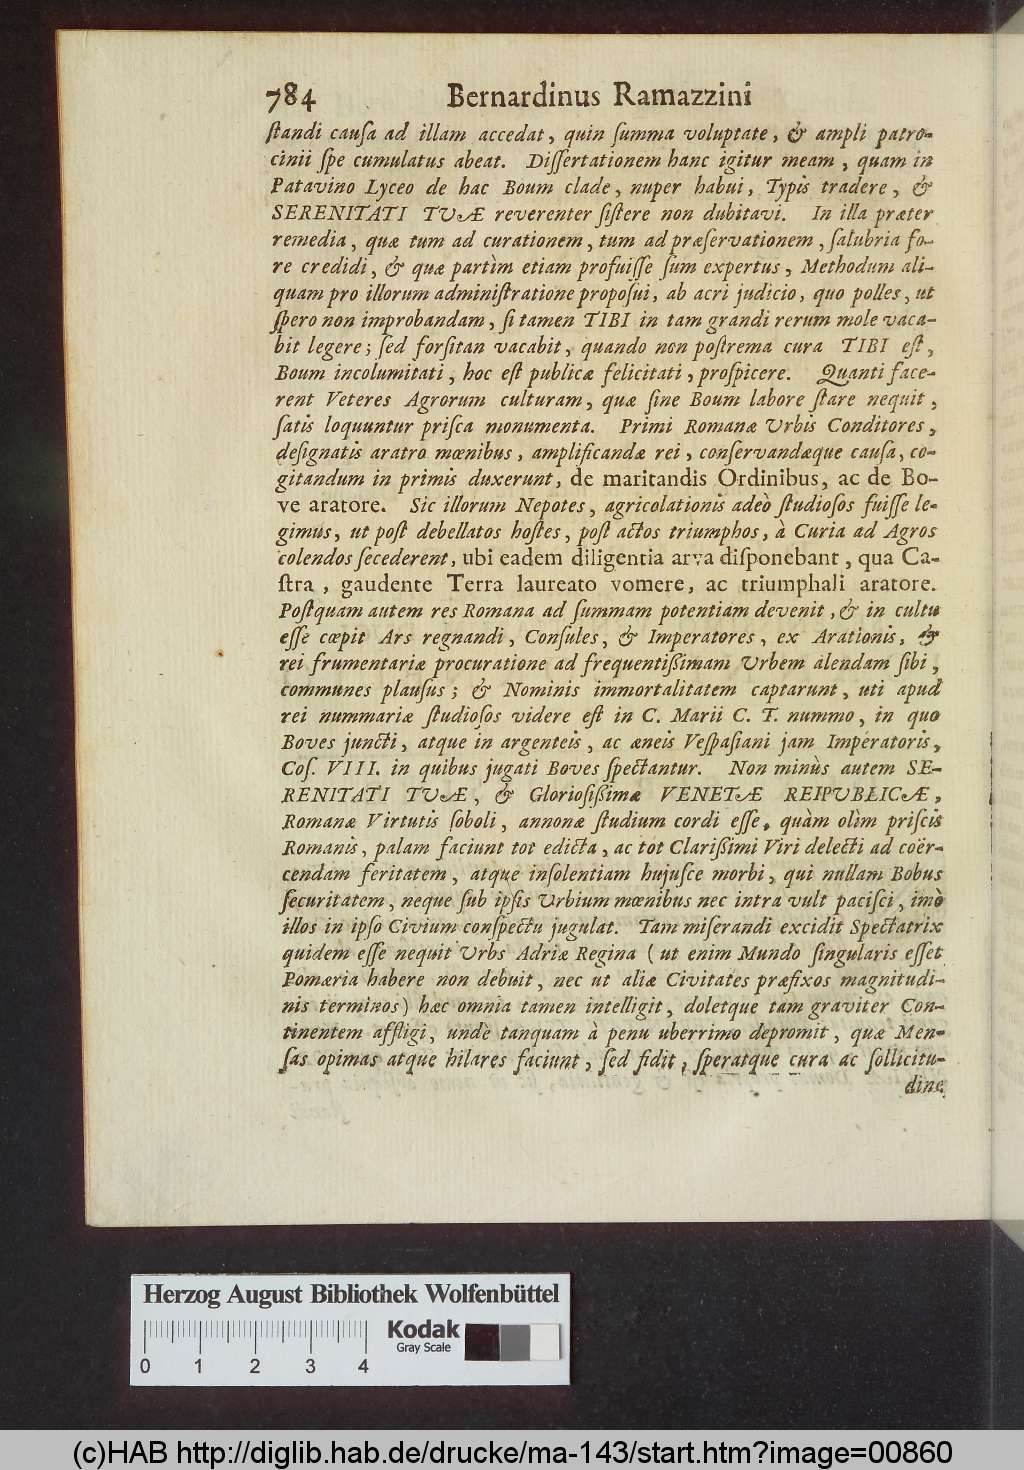 784 Bernardinus Ramazzini
ſtandi cauſa ad illam accedat, quin ſumma voluptate, & ampli patro-
cinii ſpe cumulatus abeat. Diſſertationem hanc igitur meam, quam in
Patavino Lyceo de hac Boum clade, nuper habui, Typis tradere, &
SERENITATI TUÆ reverenter ſiſtere non dubitavi. In illa præter
remedia, quæ tum ad curationem, tum ad præſervationem, ſalubria fo-
re credidi, & quæ partìm etiam profuiſſe ſum expertus, Methodum ali-
quam pro illorum adminiſtratione propoſui, ab acri judicio, quo polles, ut
ſpero non improbandam, ſi tamen TIBI in tam grandi rerum mole vaca-
bit legere; ſed forſitan vacabit, quando non poſtrema cura TIBI eſt,
Boum incolumitati, hoc eſt publicæ felicitati, proſpicere. Quanti face-
rent Veteres Agrorum culturam, quæ ſine Boum labore ſtare nequit,
ſatis loquuntur priſca monumenta. Primi Romanæ Urbis Conditores,
deſignatis aratro mœnibus, amplificandæ rei, conſervandæque cauſa, co-
gitandum in primis duxerunt, de maritandis Ordinibus, ac de Bo-
ve aratore. Sic illorum Nepotes, agricolationis adeò ſtudioſos fuiſſe le-
gimus, ut poſt debellatos hoſtes, poſt actos triumphos, à Curia ad Agros
colendos ſecederent, ubi eadem diligentia arva diſponebant, qua Ca-
ſtra, gaudente Terra laureato vomere, ac triumphali aratore.
Poſtquam autem res Romana ad ſummam potentiam devenit, & in cultu
eſſe cœpit Ars regnandi, Conſules, & Imperatores, ex Arationis, &
rei frumentariæ procuratione ad frequentiſſimam Urbem alendam ſibi,
communes plauſus; & Nominis immortalitatem captarunt, uti apud
rei nummariæ ſtudioſos videre eſt in C. Marii C. T. nummo, in quo
Boves juncti, atque in argenteis, ac æneis Veſpaſiani jam Imperatoris,
Coſ. VIII. in quibus jugati Boves ſpectantur. Non minùs autem SE-
RENITATI TUÆ, & Glorioſiſſimæ VENETÆ REIPUBLICÆ,
Romanæ Virtutis ſoboli, annonæ ſtudium cordi eſſe, quàm olìm priſcis
Romanis, palam faciunt tot edicta, ac tot Clariſſimi Viri delecti ad coër-
cendam feritatem, atque inſolentiam hujuſce morbi, qui nullam Bobus
ſecuritatem, neque ſub ipſis Urbium mœnibus nec intra vult paciſci, imò
illos in ipſo Civium conſpectu jugulat. Tam miſerandi excidit Spectatrix
quidem eſſe nequit Urbs Adriæ Regina (ut enim Mundo ſingularis eſſet
Pomæria habere non debuit, nec ut aliæ Civitates præfixos magnitudi-
nis terminos) hæc omnia tamen intelligit, doletque tam graviter Con-
tinentem affligi, undè tanquam à penu uberrimo depromit, quæ Men-
ſas opimas atque hilares faciunt, ſed fidit, ſperatque cura ac ſollicitu-
dine
Herzog August Bibliothek Wolfenbüttel
Kodak
Gray Scale
0 1 2 3 4
(c)HAB http://diglib.hab.de/drucke/ma-143/start.htm?image=00860